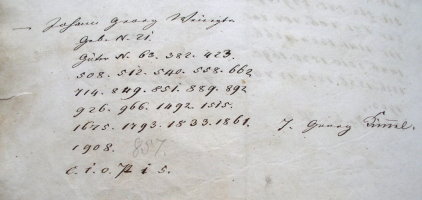 Johann Georg
Geb. N. 21.
Güter N. 63. 382. 423.
508. 512. 540. 558. 662
714. 849. 851. 889. 892
926. 966. 1492. 1515.
1675. 1793. 1833. 1861. J. Georg
1908. 857.